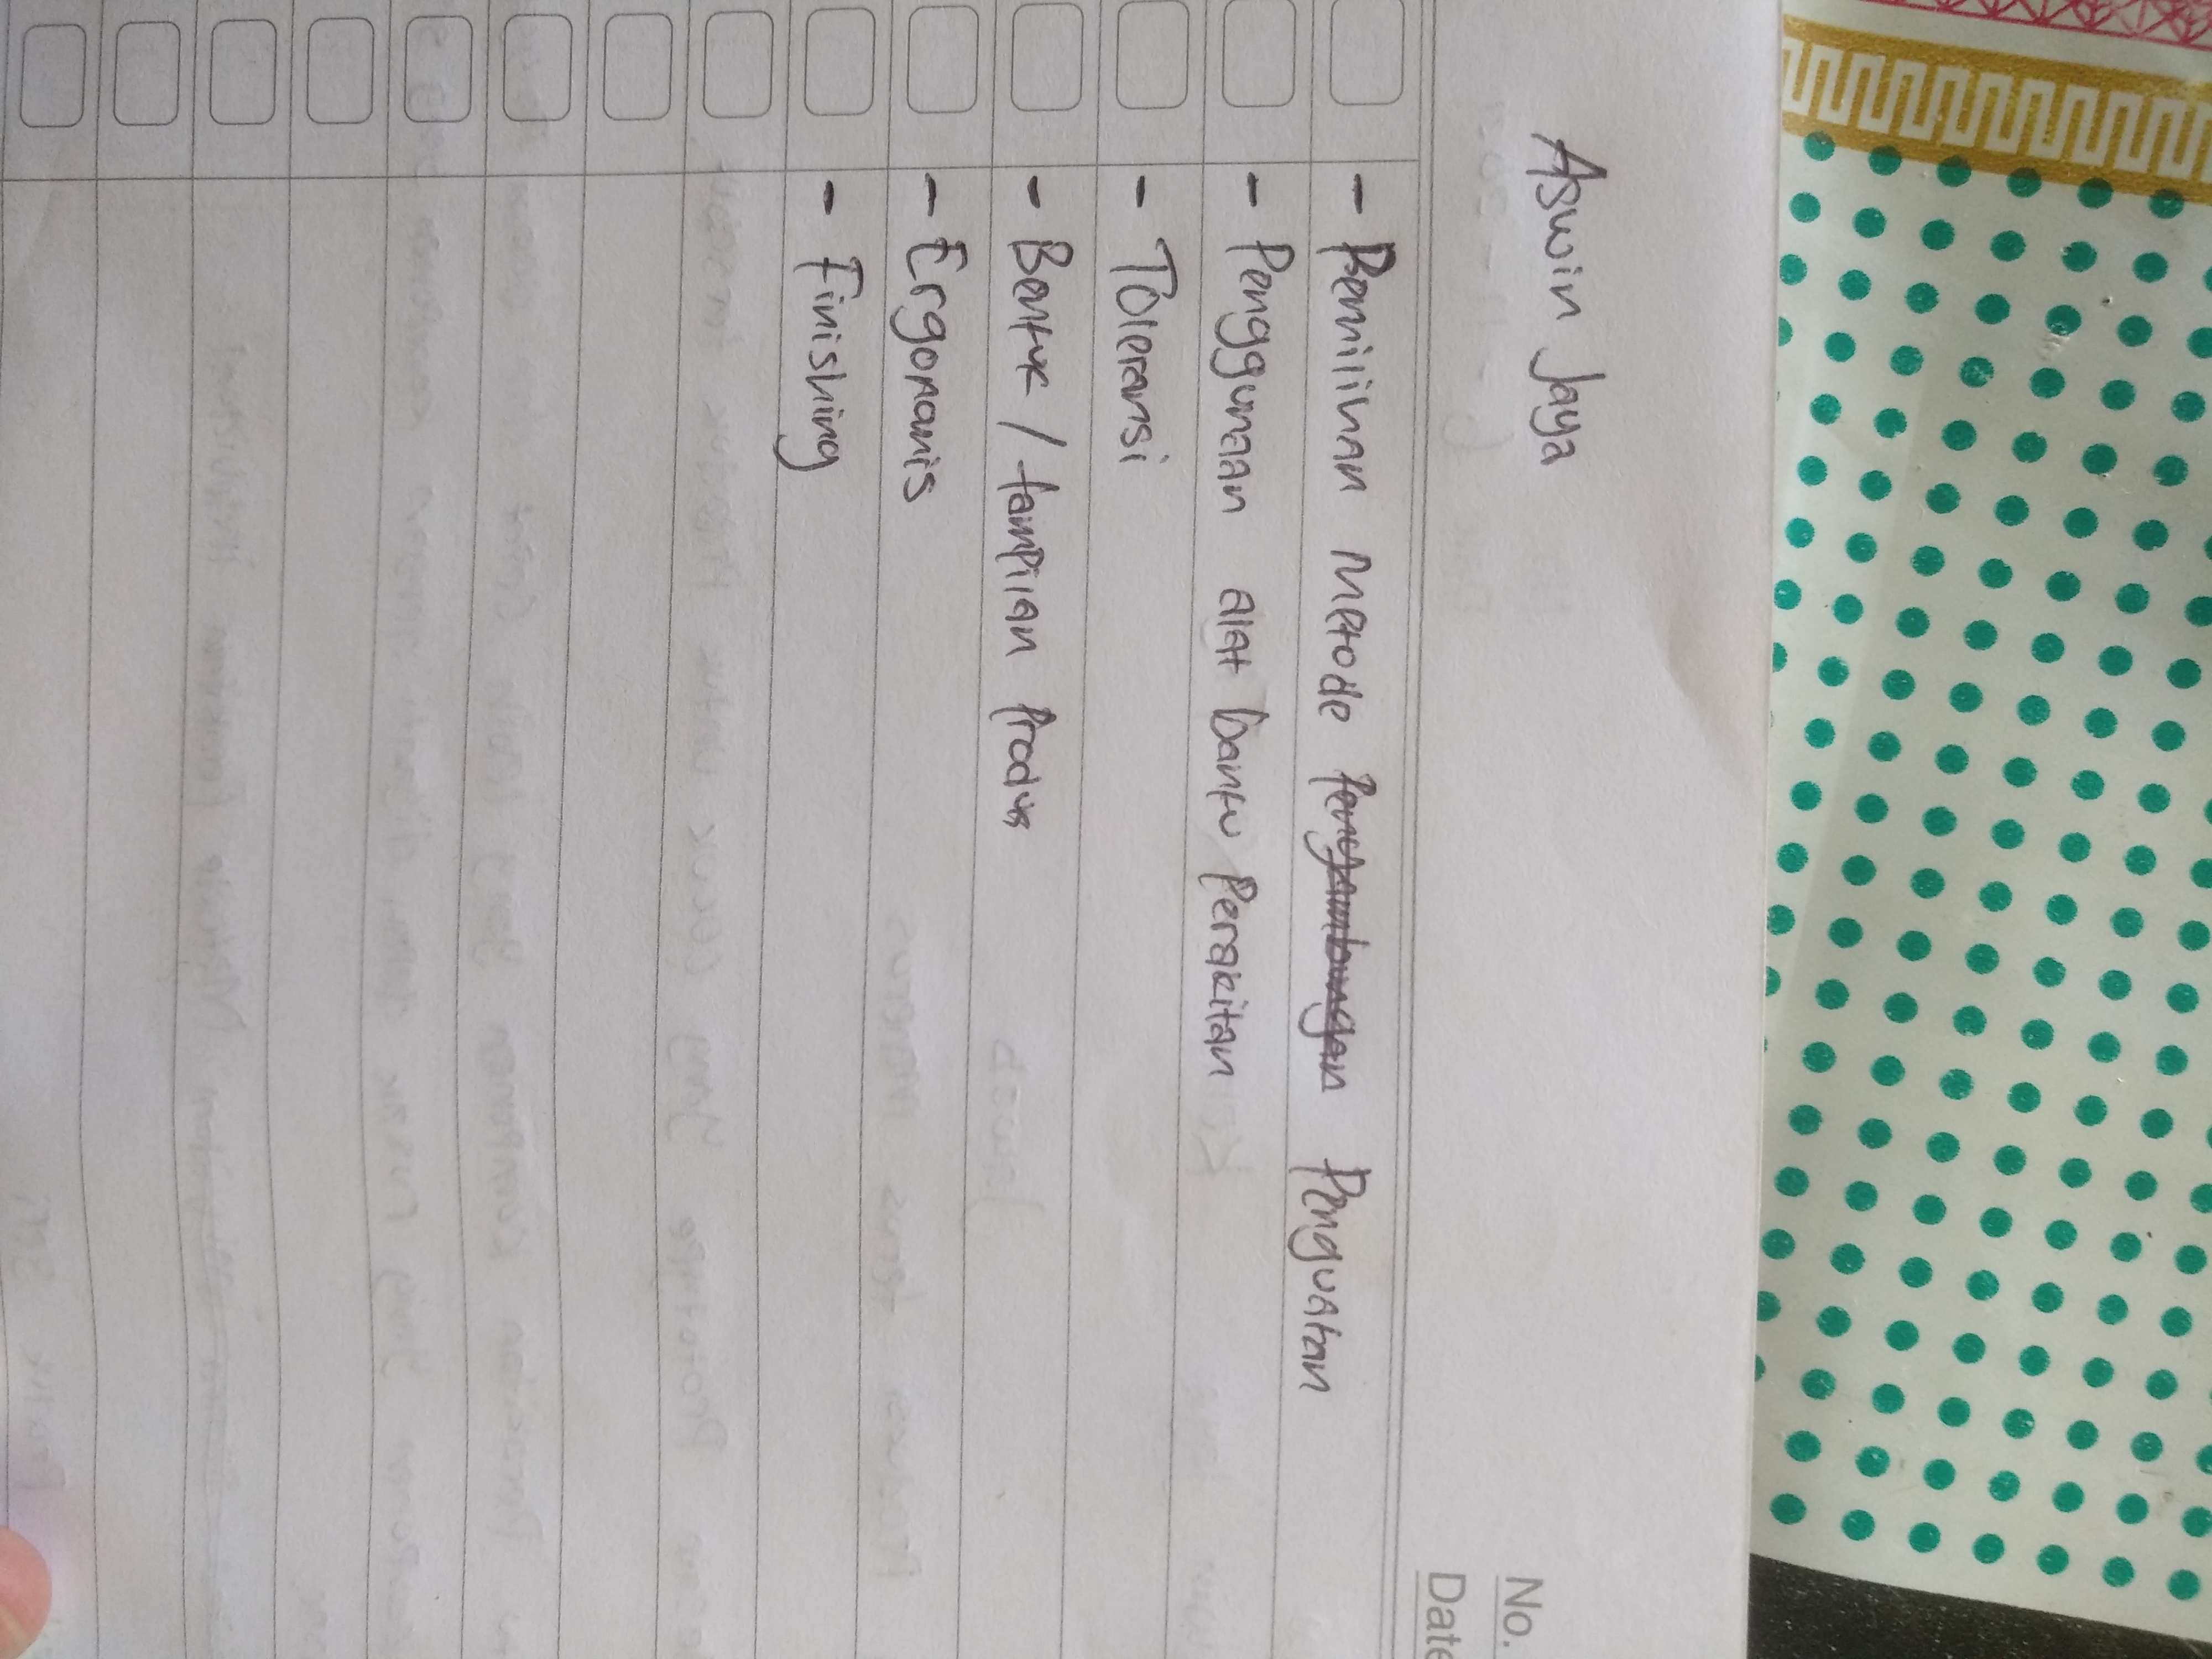 Aswin Jaya
No.
Date
- Pemilihan Metode Penyambungan Penguatan
- Penggunaan alat bantu Perakitan
- Toleransi
- Bentuk / tampilan Produk
- Ergonomis
- Finishing